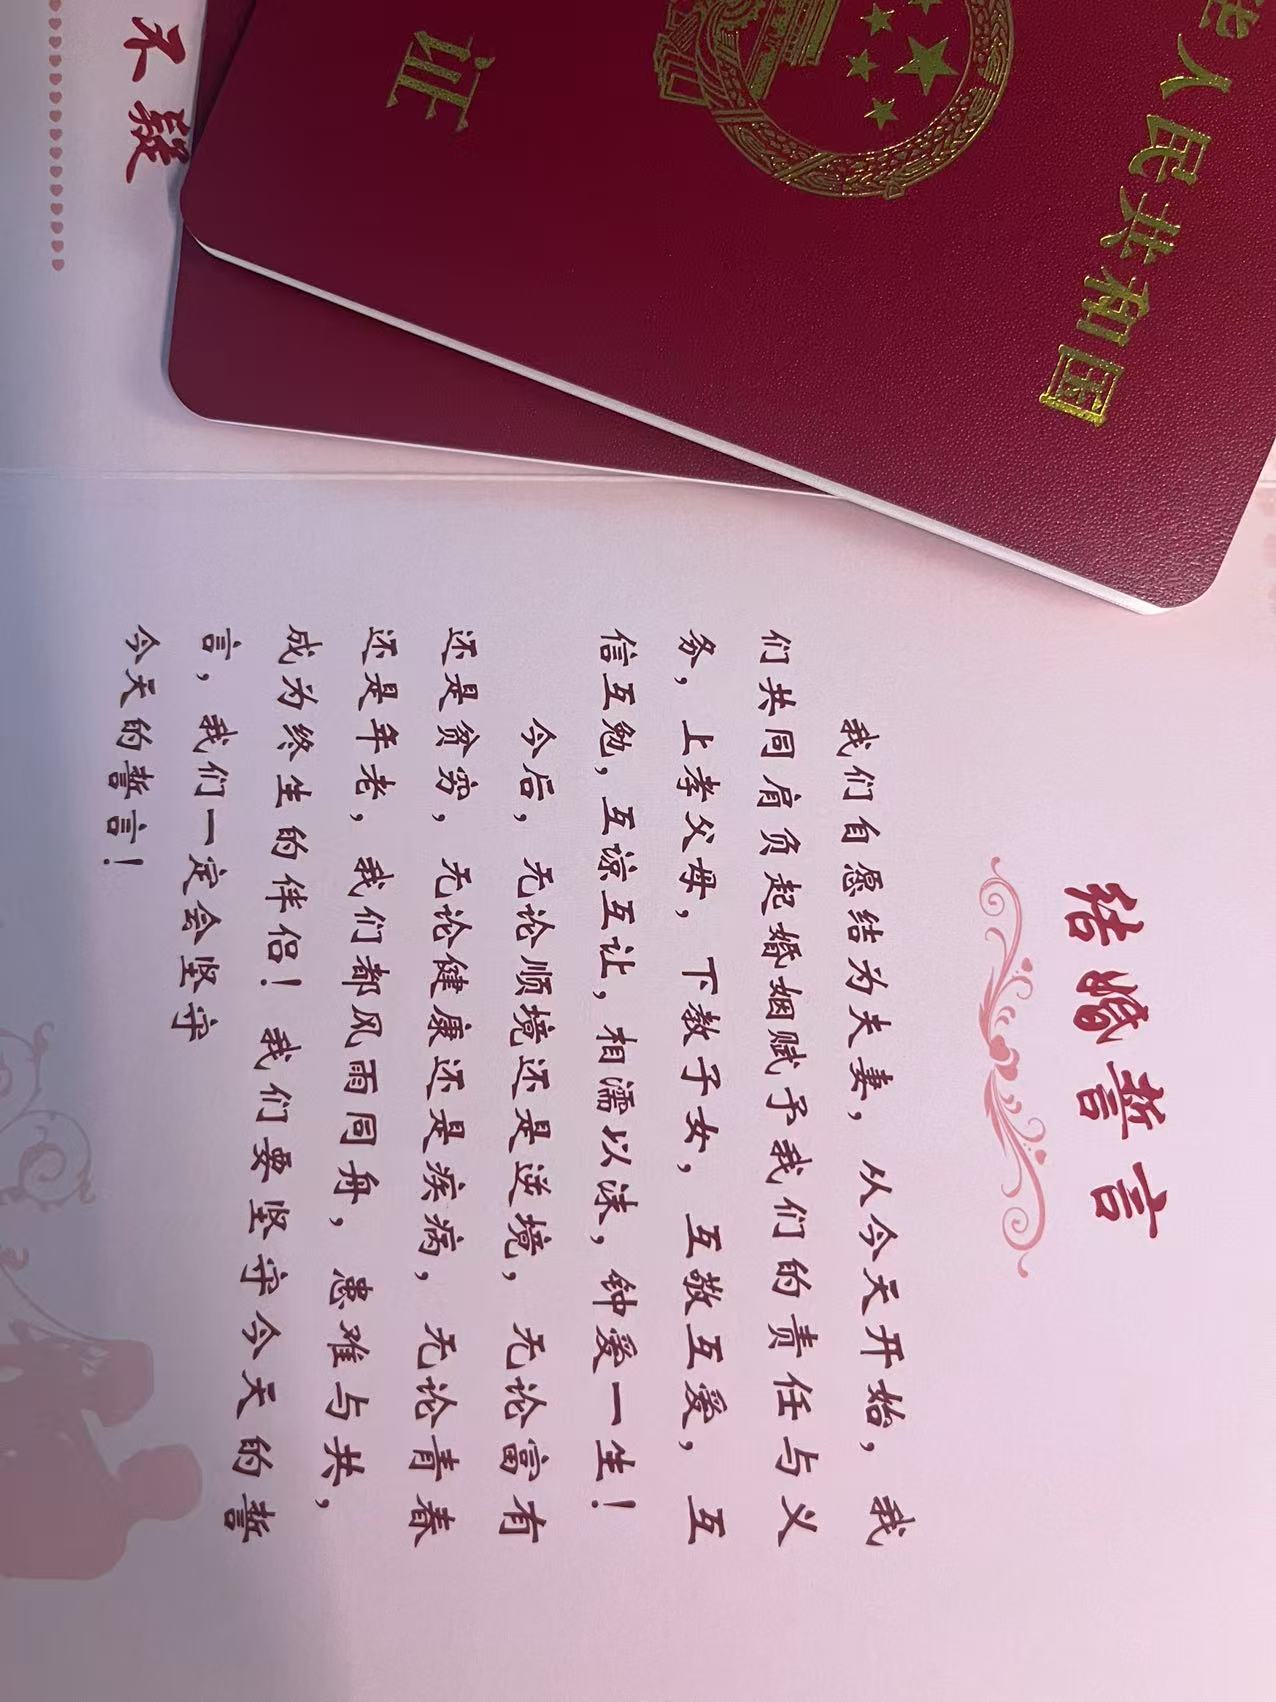 华人民共和国
证
永结
结婚誓言
我们自愿结为夫妻，从今天开始，我
们共同肩负起婚姻赋予我们的责任与义
务，上孝父母，下教子女，互敬互爱，互
信互勉，互谅互让，相濡以沫，钟爱一生！
今后，无论顺境还是逆境，无论富有
还是贫穷，无论健康还是疾病，无论青春
还是年老，我们都风雨同舟，患难与共，
成为终生的伴侣！我们要坚守今天的誓
言，我们一定会坚守
今天的誓言！